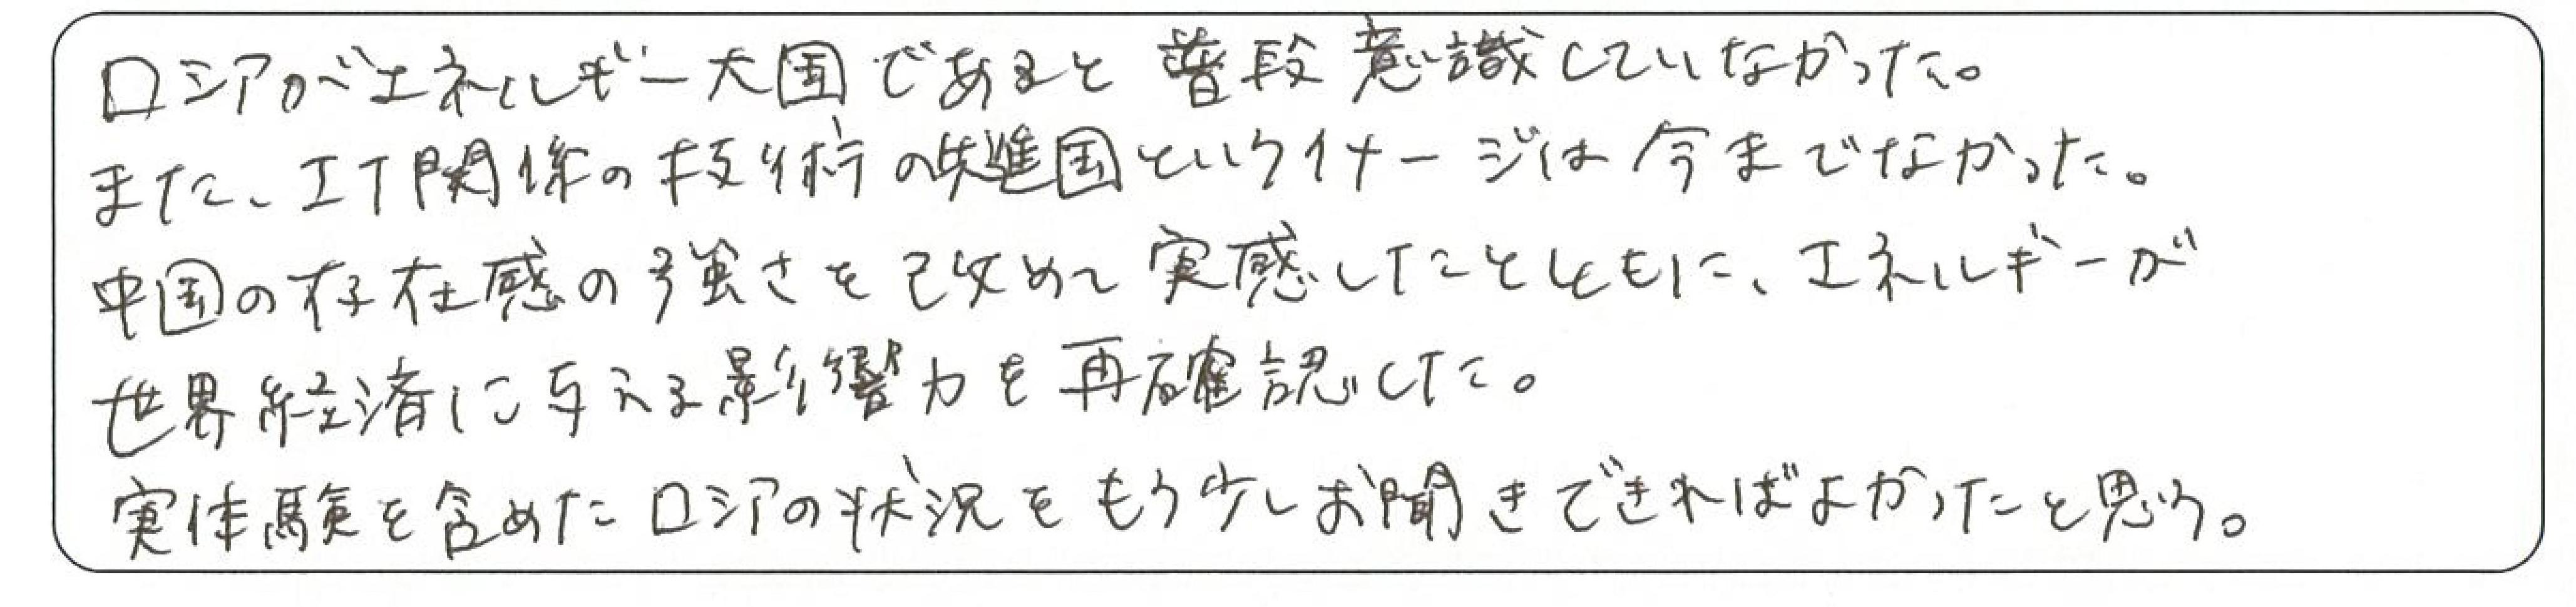 ロシアがエネルギー大国であると普段意識していなかった。
また、IT関係の技術の先進国というイメージは今までなかった。
中国の存在感の強さを改めて実感したとともに、エネルギーが
世界経済に与える影響力を再確認した。
実体験を含めたロシアの状況をもう少しお聞きできればよかったと思う。